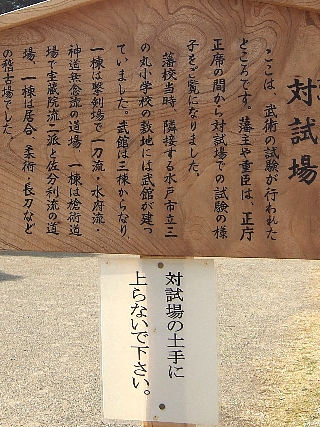 対試場
ここは、武術の試験が行われた
ところです。藩主や重臣は、正庁
正席の間から対試場での試験の様
子をご覧になりました。
藩校当時、隣接する水戸市立三
の丸小学校の敷地には武館が建っ
ていました。武館は三棟からなり
一棟は撃剣場で一刀流・水府流・
神道無念流の道場、一棟は槍術道
場で宝蔵院流二派と佐分利流の道
場、一棟は居合、柔術、長刀など
の稽古場でした。
対試場の土手に
上らないで下さい。